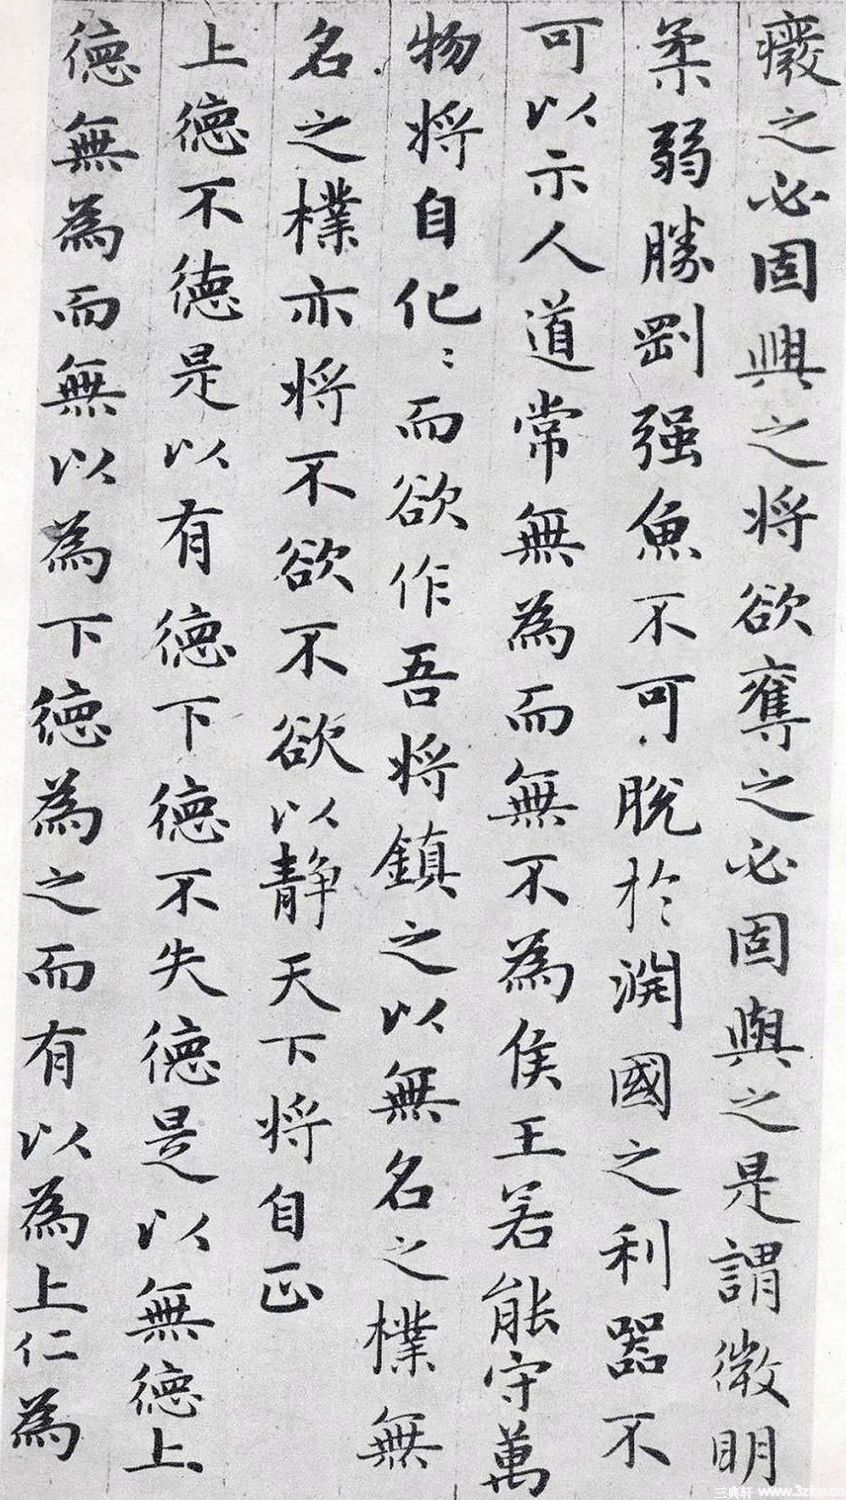 癈之必固興之将欲奪之必固與之是謂微明
柔弱勝剛强魚不可脱於渊國之利器不
可以示人道常無為而無不為侯王若能守萬
物将自化〻而欲作吾将鎮之以無名之樸無
名之樸亦将不欲不欲以静天下将自正
上徳不徳是以有徳下徳不失徳是以無徳上
徳無為而無以為下徳為之而有以為上仁為
三典轩 www.3zitie.cn